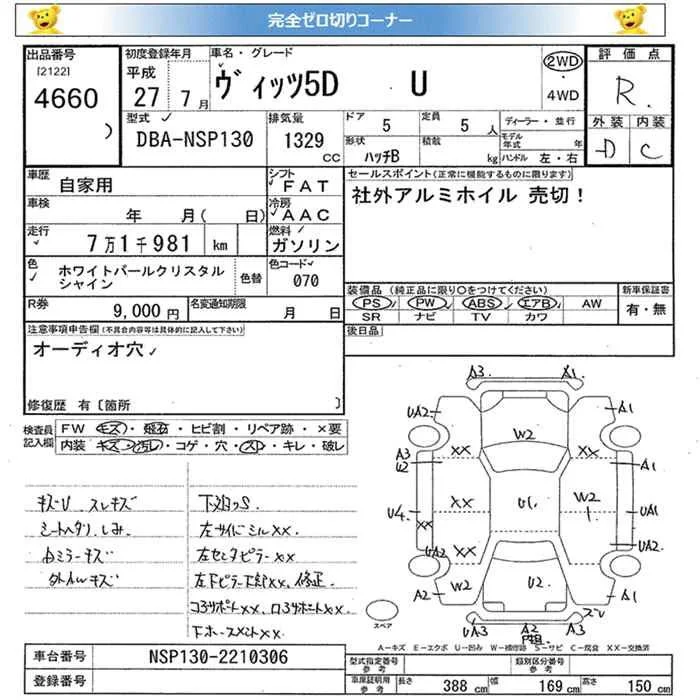 完全ゼロ切りコーナー
出品番号
[2122]
4660
初度登録年月
平成
27 7月
車名・グレード
ヴィッツ5D U
2WD
・
4WD
評価点
R.
外装 内装
D C
型式
DBA-NSP130
排気量
1329
CC
ドア
5
定員
5人
ディーラー・並行
形状
ハッチB
積載
kg
モデル年式 年
ハンドル 左・右
車歴
自家用
シフト
FAT
セールスポイント(正常に機能するものに限ります)
社外アルミホイル 売切!
車検
年 月( 日)
冷房
AAC
走行
7万1千981 km
燃料
ガソリン
色
ホワイトパールクリスタル
シャイン
色替
色コード
070
装備品 (純正品に限り○をつけてください)
PS PW ABS エアB AW
SR ナビ TV カワ
新車保証書
有・無
R券
9,000円
名変通知期限
月 日
後日品
注意事項申告欄(不具合内容等は具体的に記入して下さい)
オーディオ穴
修復歴 有〔箇所 〕
検査員
記入欄
FW キズ・飛石・ヒビ割・リペア跡・×要
内装 キズ・汚れ・コゲ・穴・スレ・キレ・破レ
キズU スレキズ
シートヘタリ、しみ
右ミラーキズ
外ホイルキズ
下廻りS
左サイドシルXX.
左センタピラーXX
修正
A3 A1
UA2 A1
W2
A3 XX XX A1
U2
U4 XX U1 W2 UA1
XX
UA2 XX UA2
A2 W2 U2 A1
UA3 A2 A3
スペア
A-キズ E-エクボ U-凹み W-補修跡 S-サビ C-腐食 XX-交換済
車台番号
NSP130-2210306
登録番号
型式指定番号
参考
類別区分番号
参考
車庫証明用
参考
長さ 388cm 幅 169cm 高さ 150cm